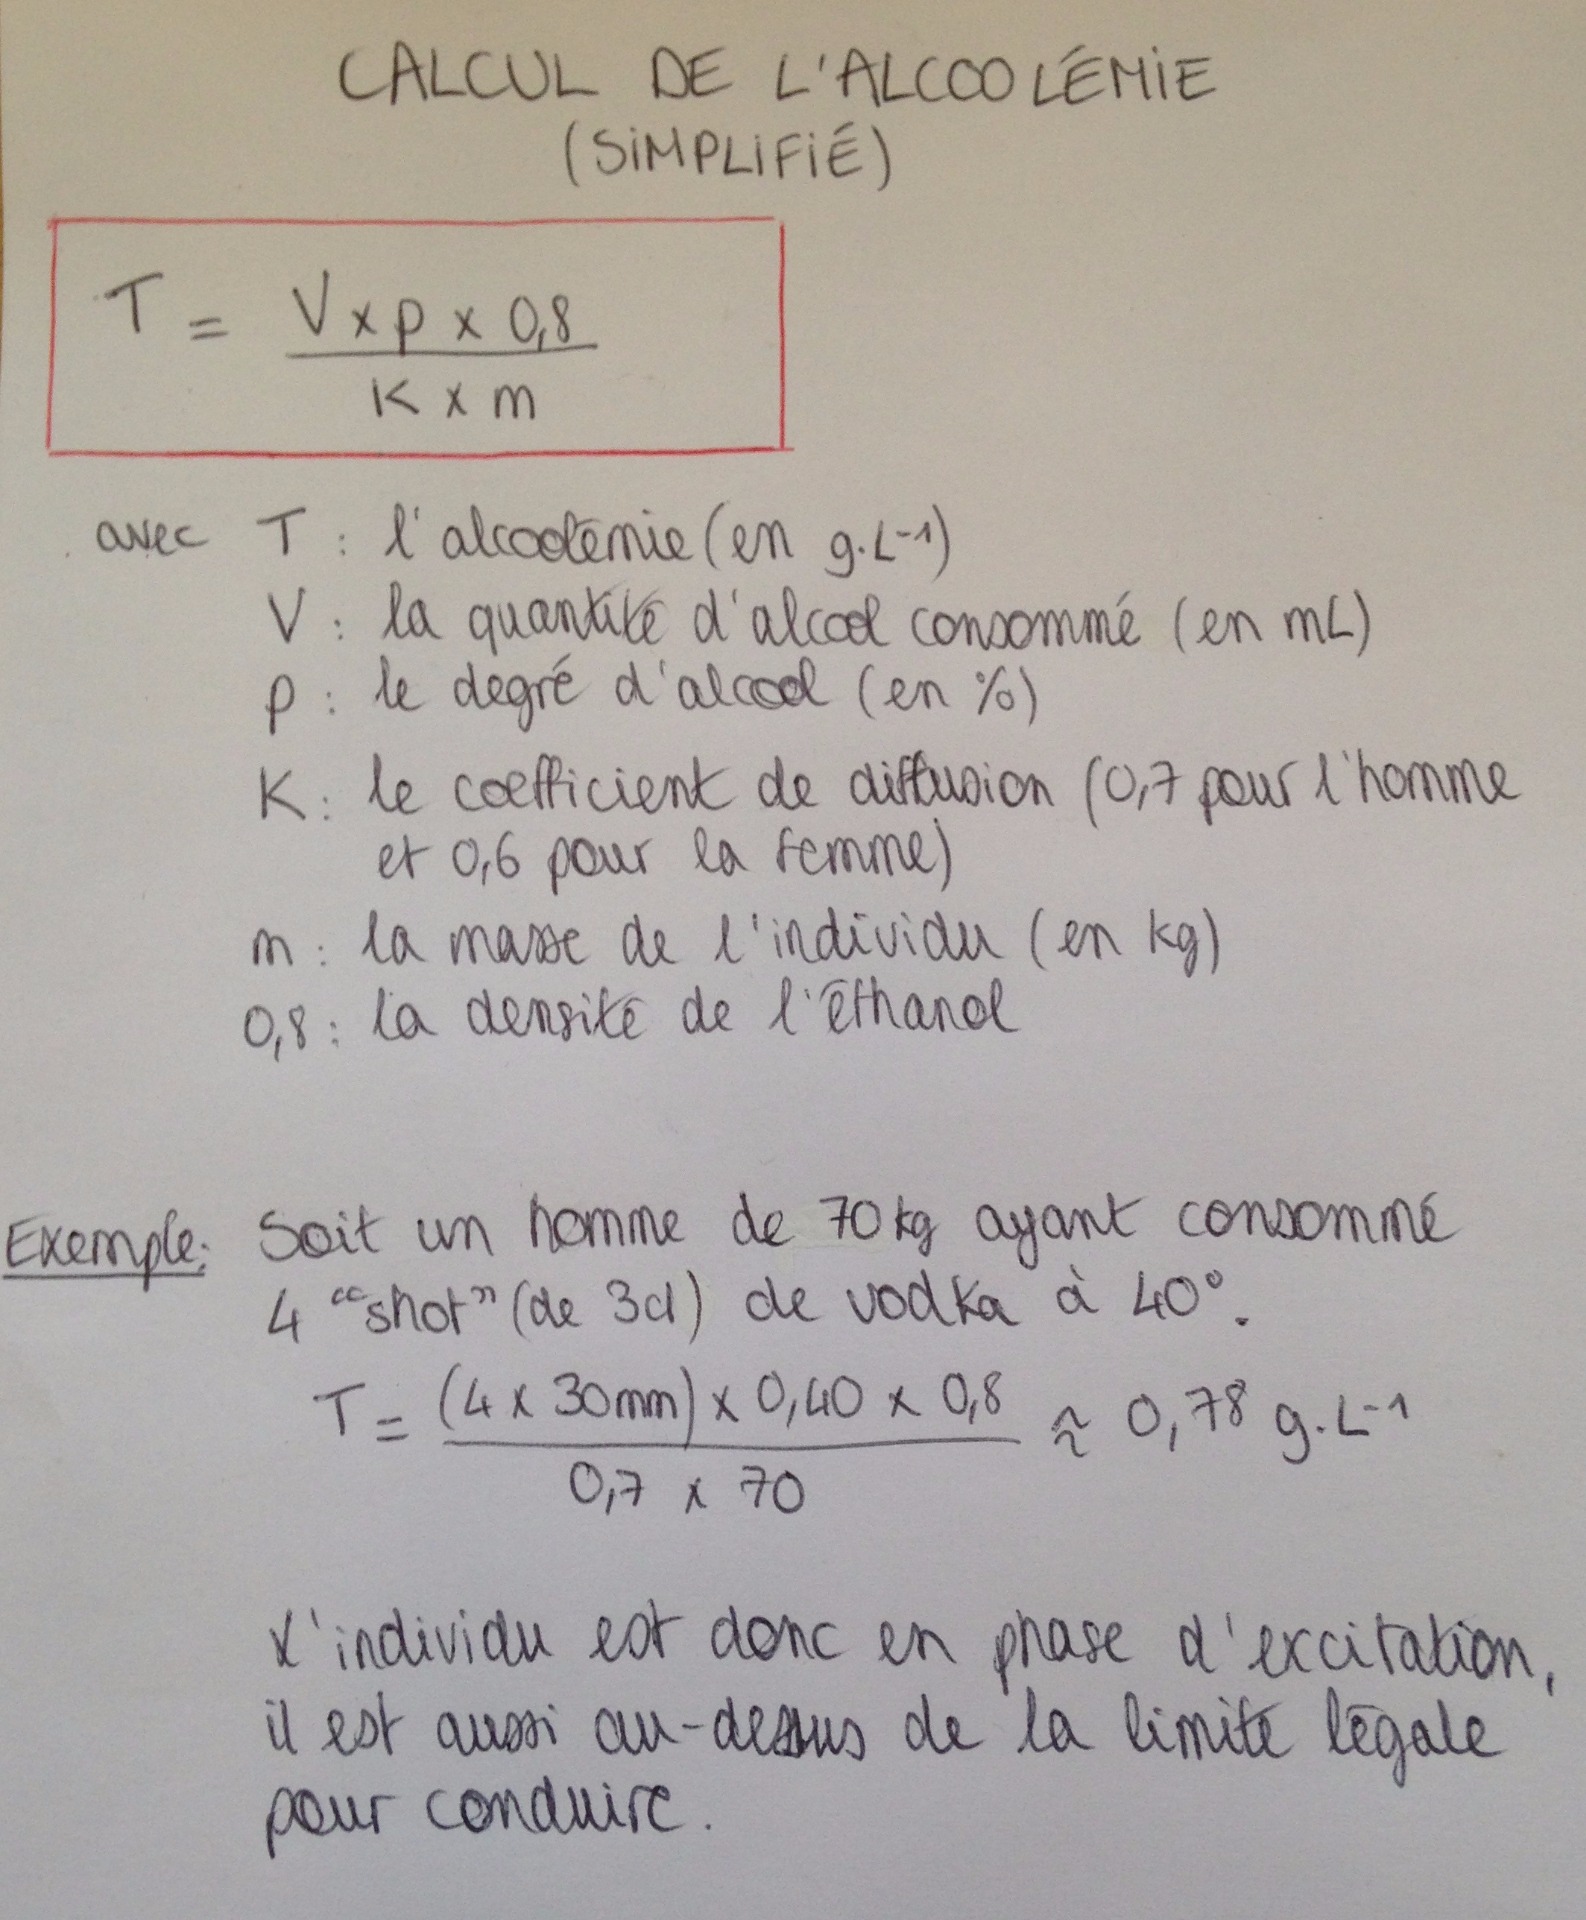 CALCUL DE L'ALCOOLÉMIE
(SIMPLIFIÉ)
T = V x p x 0,8
K x m
avec T : l'alcoolémie (en g.L-1)
V : la quantité d'alcool consommé (en mL)
p : le degré d'alcool (en %)
K : le coefficient de diffusion (0,7 pour l'homme
et 0,6 pour la femme)
m : la masse de l'individu (en kg)
0,8 : la densité de l'éthanol
Exemple: Soit un homme de 70kg ayant consommé
4 "shot" (de 3cl) de vodka à 40°.
T = (4 x 30mm) x 0,40 x 0,8 ≈ 0,78 g.L-1
0,7 x 70
L'individu est donc en phase d'excitation,
il est aussi au-dessus de la limite légale
pour conduire.